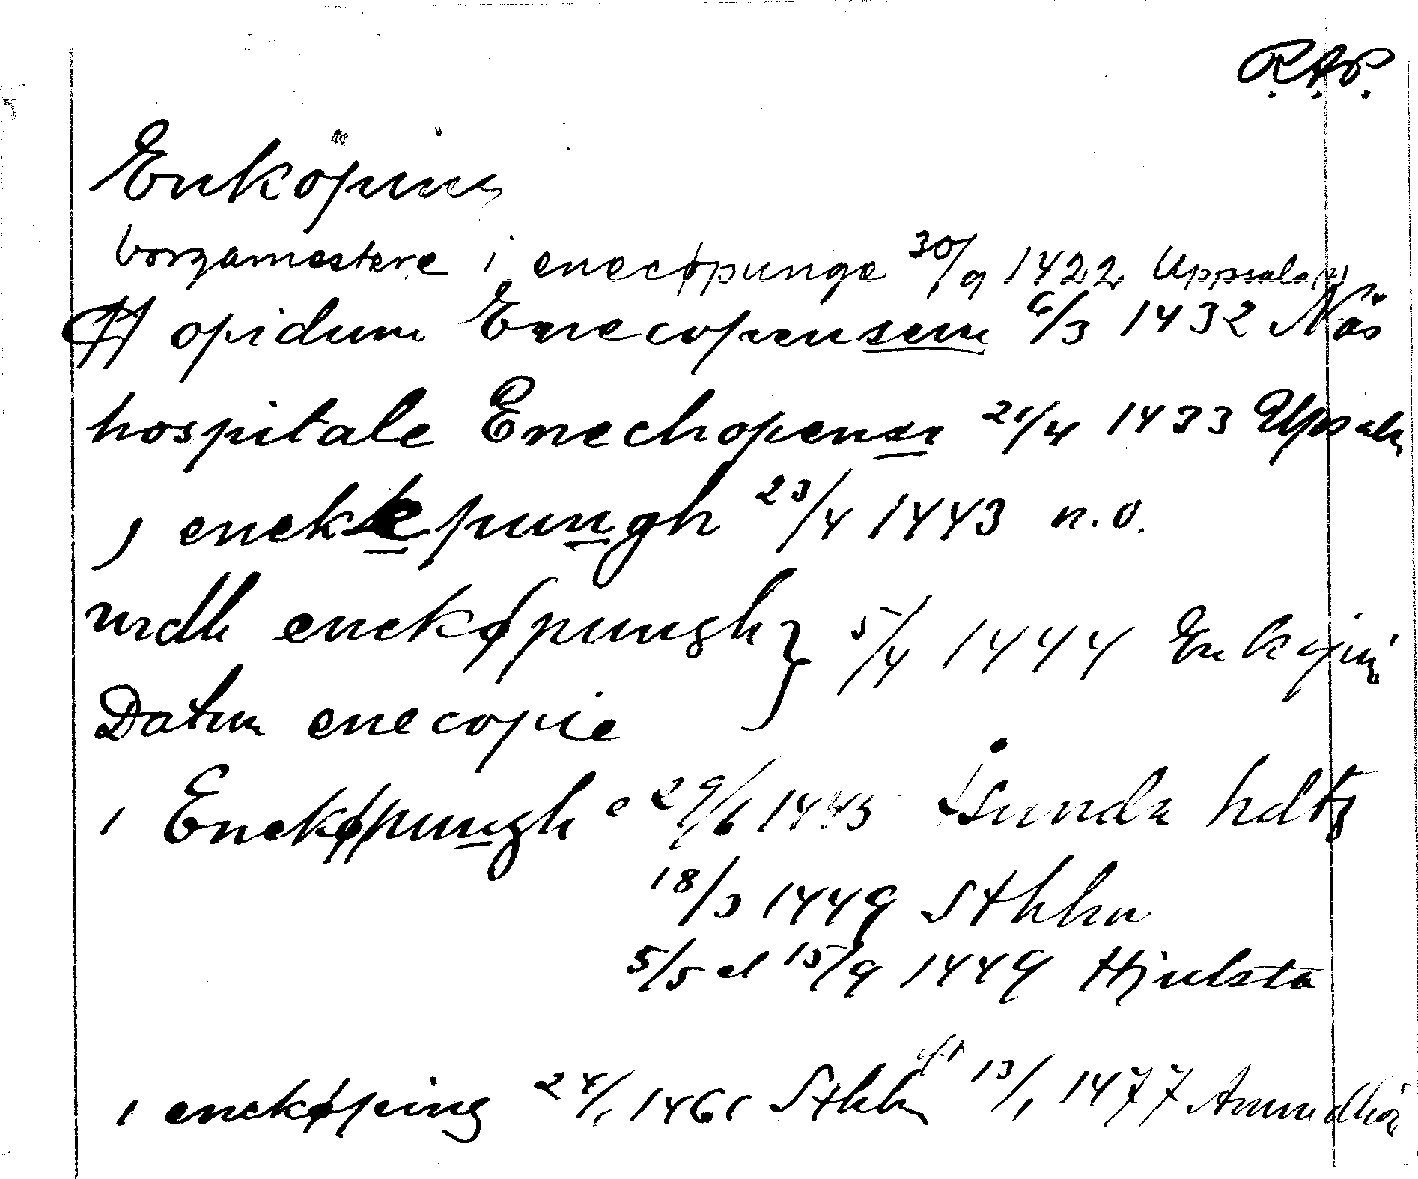 R.A.P.
Enköping
borgamestere i enecøpunge 30/9 1422 Uppsala
opidum Enecopensem 6/3 1432 Näs
hospitale Enechopensi 21/4 1433 Upsala
j enekkepungh 23/4 1443 n.o.
widh enekøpungh } 5/4 1444 Enköping
Datum enecopie
i Enekøpungh e 29/6 1445 Åsunda hdtg
18/3 1449 Sthlm
5/5 el 15/9 1449 Hjulsta
i enekøping 24/1 1461 Sthlm 13/1 1477